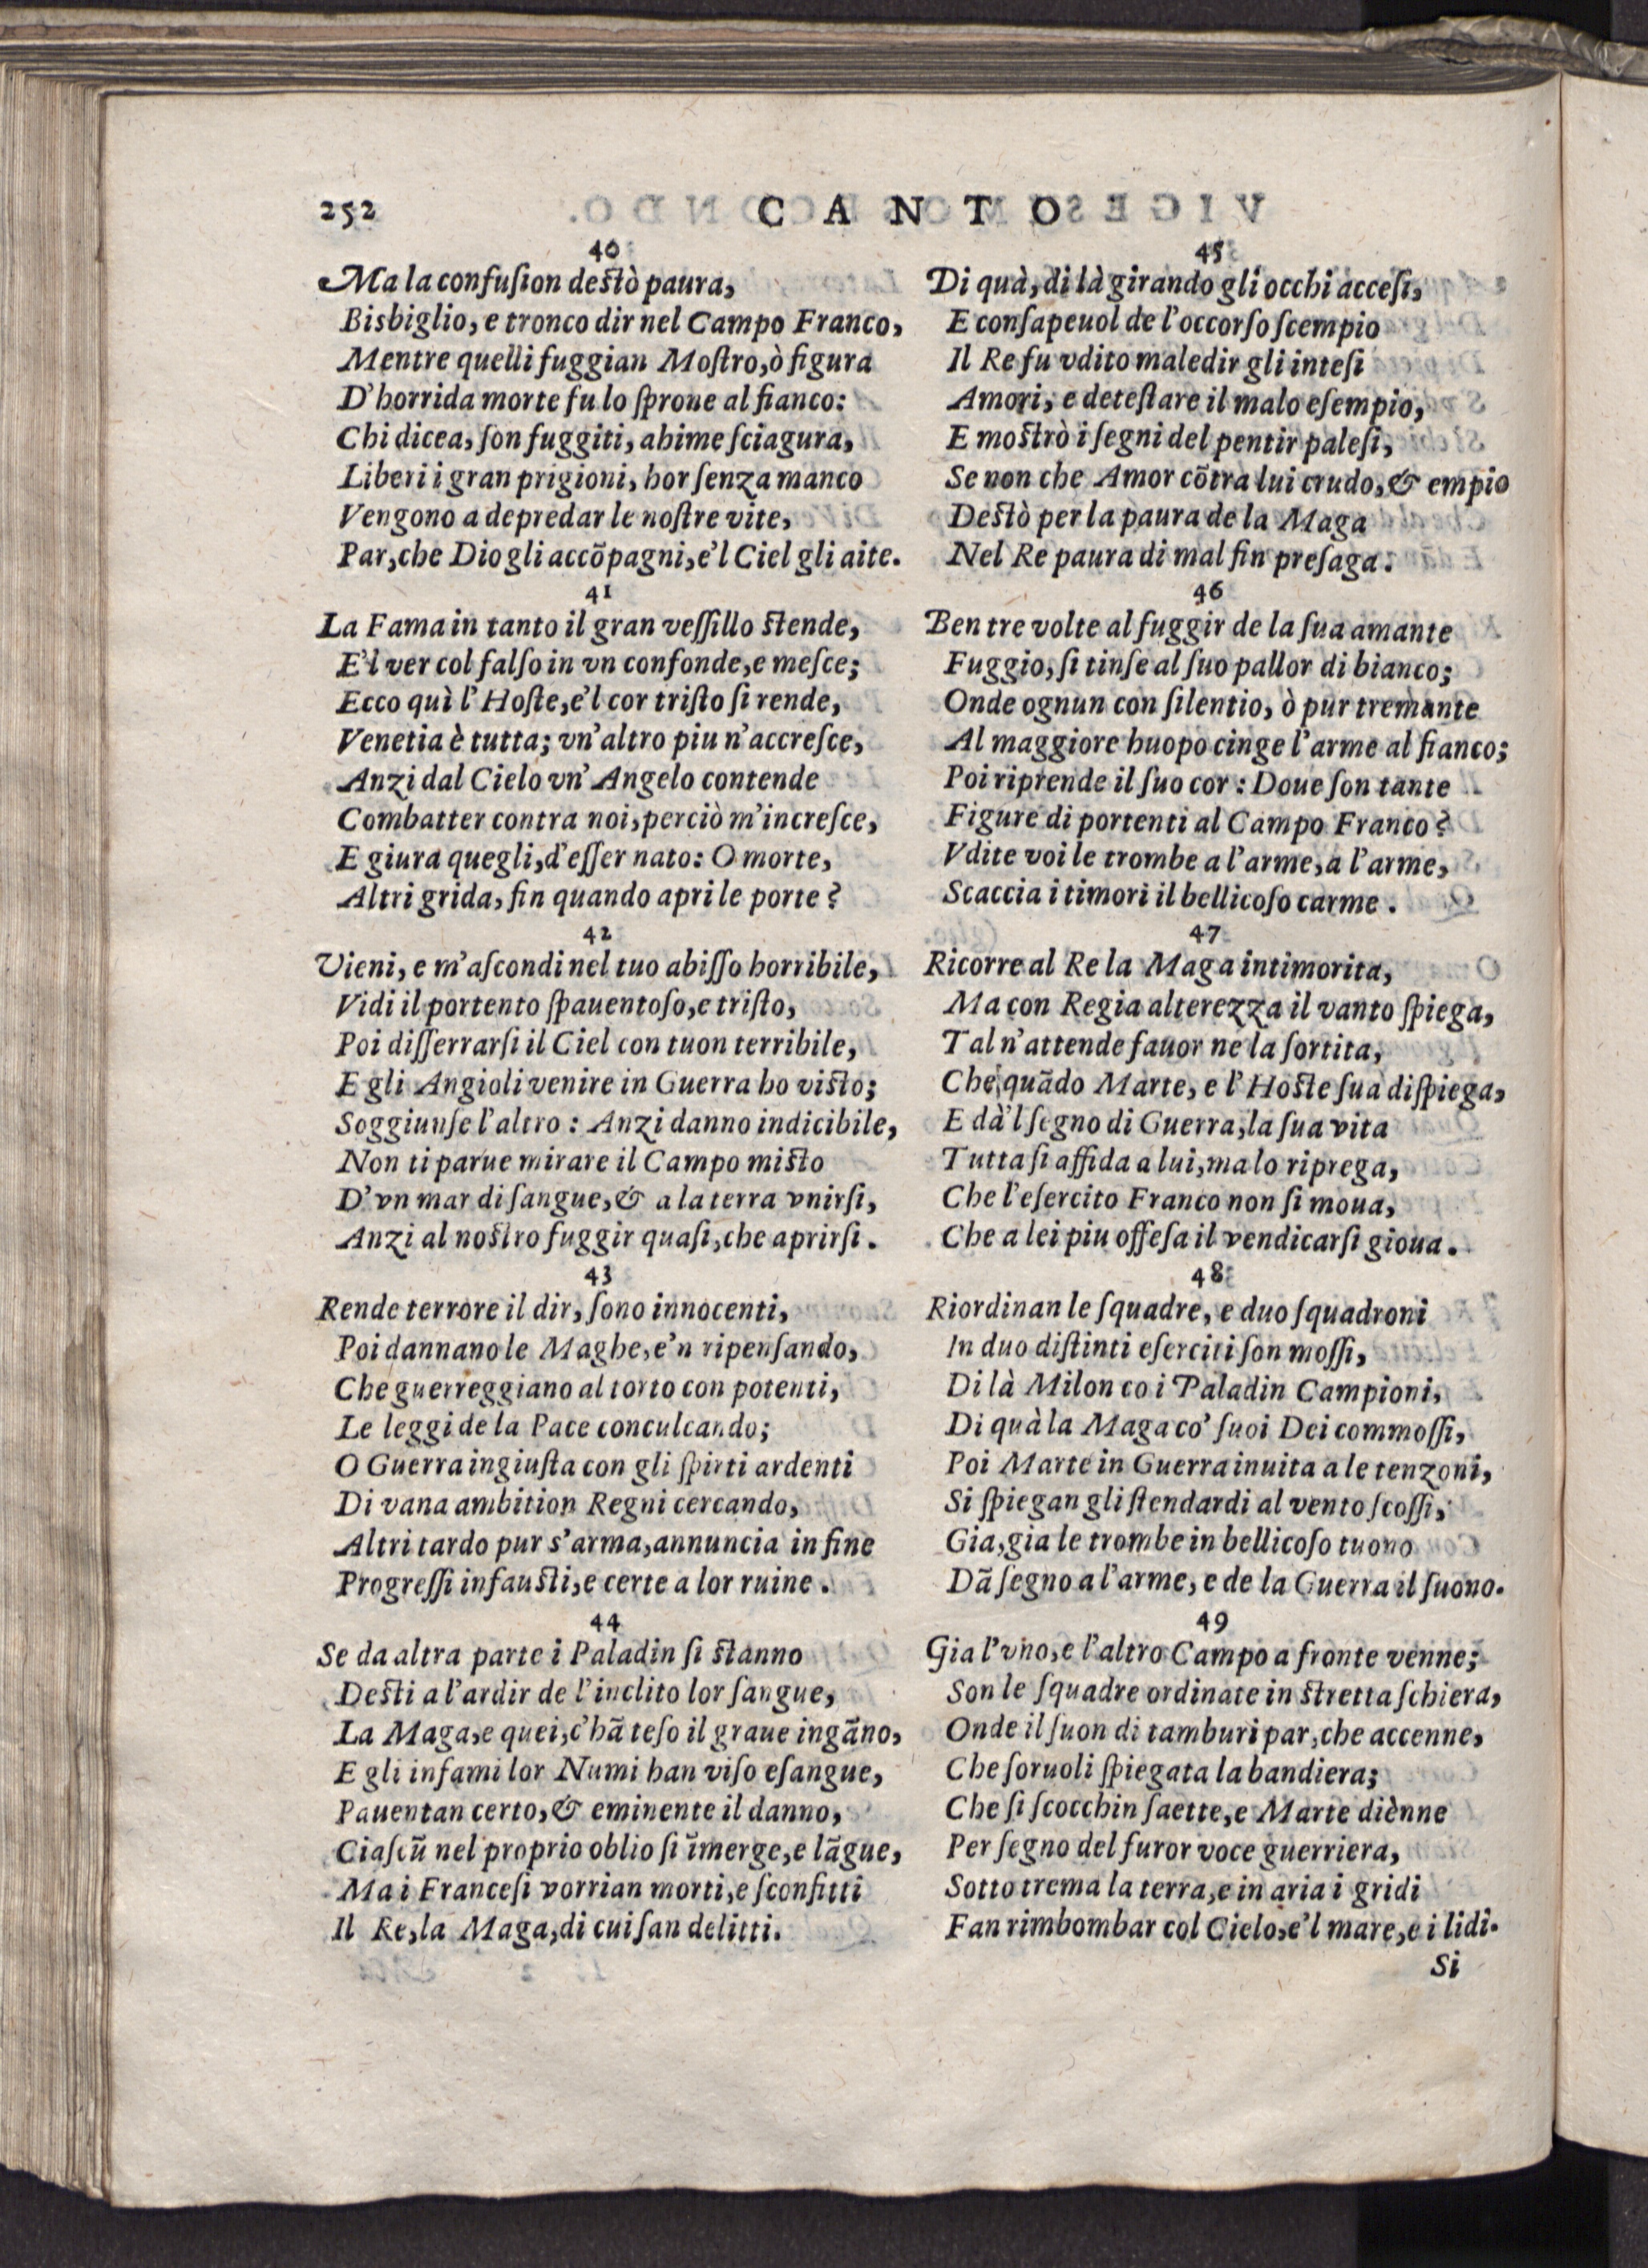 252
CANTO
40
Ma la confuſion deſtò paura,
Bisbiglio, e tronco dir nel Campo Franco,
Mentre quelli fuggian Moſtro, ò figura
D'horrida morte fu lo ſprone al fianco:
Chi dicea, ſon fuggiti, ahime ſciagura,
Liberi i gran prigioni, hor ſenza manco
Vengono a depredar le noſtre vite,
Par, che Dio gli accõpagni, e'l Ciel gli aite.
41
La Fama in tanto il gran veſſillo ſtende,
E'l ver col falſo in vn confonde, e meſce;
Ecco quì l'Hoſte, e'l cor triſto ſi rende,
Venetia è tutta; vn'altro piu n'accreſce,
Anzi dal Cielo vn'Angelo contende
Combatter contra noi, perciò m'increſce,
E giura quegli, d'eſſer nato: O morte,
Altri grida, fin quando apri le porte?
42
Vieni, e m'aſcondi nel tuo abiſſo horribile,
Vidi il portento ſpauentoſo, e triſto,
Poi diſſerrarſi il Ciel con tuon terribile,
E gli Angioli venire in Guerra ho viſto;
Soggiunſe l'altro: Anzi danno indicibile,
Non ti parue mirare il Campo miſto
D'vn mar di ſangue, & a la terra vnirſi,
Anzi al noſtro fuggir quaſi, che aprirſi.
43
Rende terrore il dir, ſono innocenti,
Poi dannano le Maghe, e'n ripenſando,
Che guerreggiano al torto con potenti,
Le leggi de la Pace conculcando;
O Guerra ingiuſta con gli ſpirti ardenti
Di vana ambition Regni cercando,
Altri tardo pur s'arma, annuncia in fine
Progreſſi infauſti, e certe a lor ruine.
44
Se da altra parte i Paladin ſi ſtanno
Deſti a l'ardir de l'inclito lor ſangue,
La Maga, e quei, c'hã teſo il graue ingãno,
E gli infami lor Numi han viſo eſangue,
Pauentan certo, & eminente il danno,
Ciaſcũ nel proprio oblio ſi ĩmerge, e lãgue,
Ma i Franceſi vorrian morti, e ſconfitti
Il Re, la Maga, di cui ſan delitti.
45
Di quà, di là girando gli occhi acceſi,
E conſapeuol de l'occorſo ſcempio
Il Re fu vdito maledir gli inteſi
Amori, e deteſtare il malo eſempio,
E moſtrò i ſegni del pentir paleſi,
Se non che Amor cõtra lui crudo, & empio
Deſtò per la paura de la Maga
Nel Re paura di mal fin preſaga.
46
Ben tre volte al fuggir de la ſua amante
Fuggio, ſi tinſe al ſuo pallor di bianco;
Onde ognun con ſilentio, ò pur tremante
Al maggiore huopo cinge l'arme al fianco;
Poi riprende il ſuo cor: Doue ſon tante
Figure di portenti al Campo Franco?
Vdite voi le trombe a l'arme, a l'arme,
Scaccia i timori il bellicoſo carme.
47
Ricorre al Re la Maga intimorita,
Ma con Regia alterezza il vanto ſpiega,
Tal n'attende fauor ne la ſortita,
Che quãdo Marte, e l'Hoſte ſua diſpiega,
E dà'l ſegno di Guerra, la ſua vita
Tutta ſi affida a lui, ma lo riprega,
Che l'eſercito Franco non ſi moua,
Che a lei piu offeſa il vendicarſi gioua.
48
Riordinan le ſquadre, e duo ſquadroni
In duo diſtinti eſerciti ſon moſſi,
Di là Milon co i Paladin Campioni,
Di quà la Maga co' ſuoi Dei commoſſi,
Poi Marte in Guerra inuita a le tenzoni,
Si ſpiegan gli ſtendardi al vento ſcoſſi,
Gia, gia le trombe in bellicoſo tuono
Dã ſegno a l'arme, e de la Guerra il ſuono.
49
Gia l'vno, e l'altro Campo a fronte venne;
Son le ſquadre ordinate in ſtretta ſchiera,
Onde il ſuon di tamburi par, che accenne,
Che ſoruoli ſpiegata la bandiera;
Che ſi ſcocchin ſaette, e Marte diènne
Per ſegno del furor voce guerriera,
Sotto trema la terra, e in aria i gridi
Fan rimbombar col Cielo, e'l mare, e i lidi.
Si